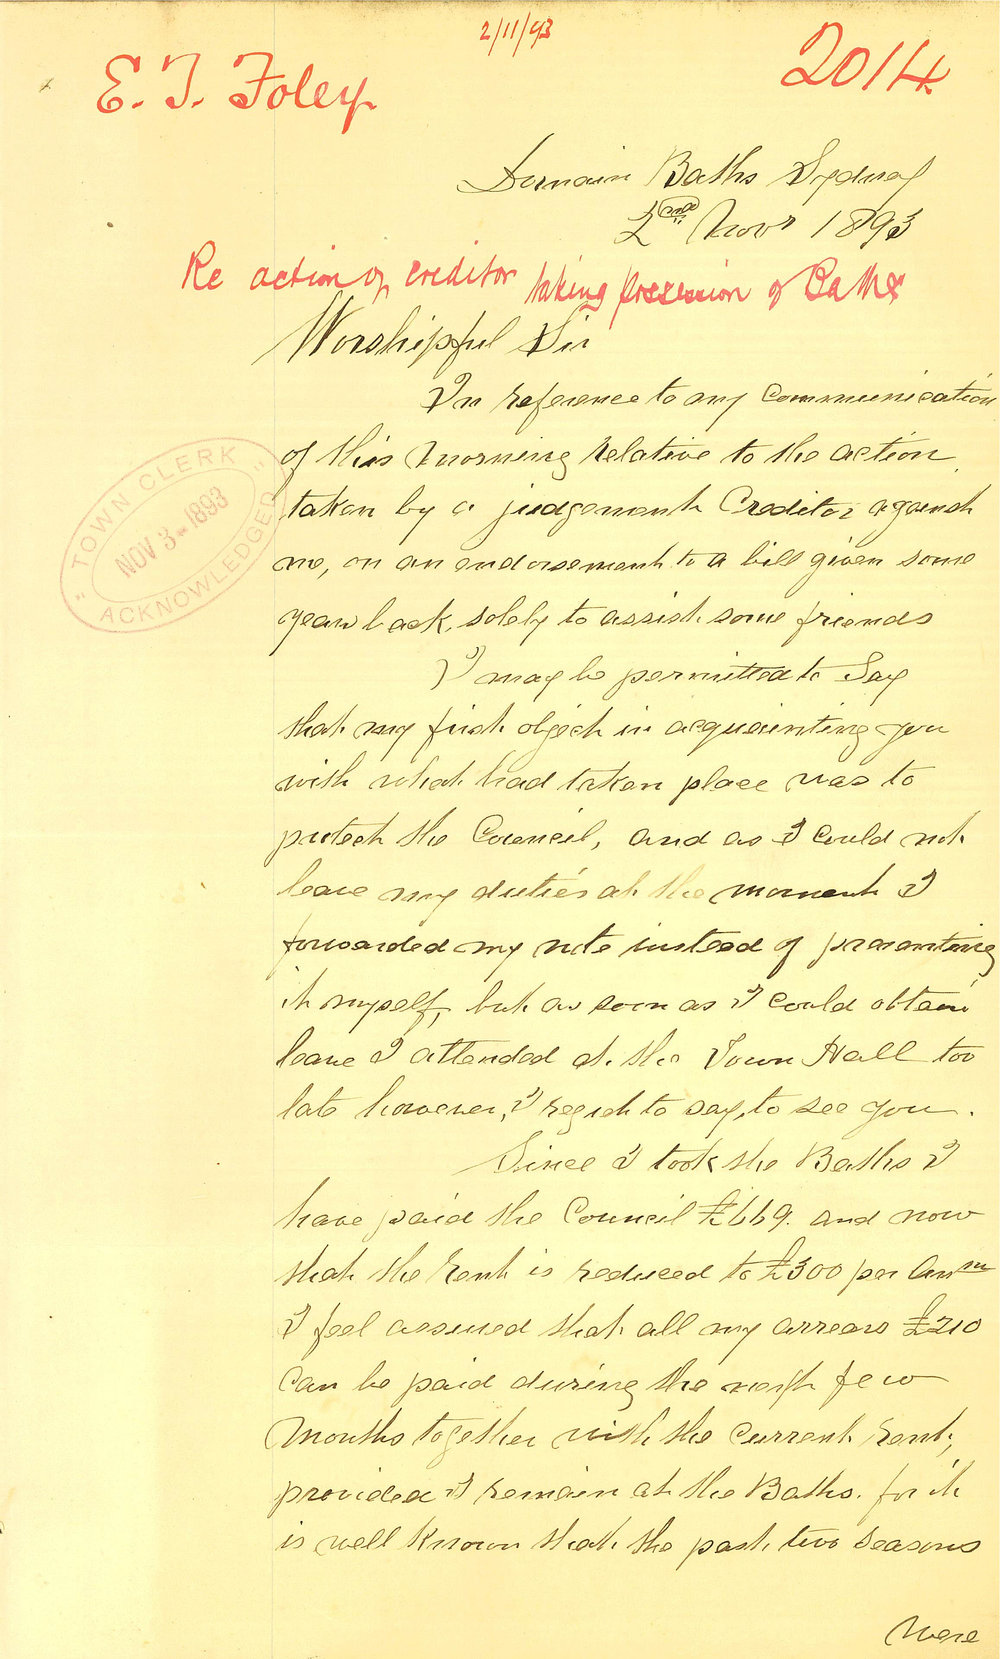 2/11/93
E. T. Foley
2014
Domain Baths Sydney
2nd Novr 1893
Re action of creditor taking possession of Baths
Worshipful Sir
In reference to my communication
of this morning relative to the action
taken by a judgement Creditor against
me, on an endorsement to a bill given some
years back, solely to assist some friends
I may be permitted to Say
that my first object in acquainting you
with what had taken place was to
protect the Council, and as I could not
leave my duties at the moment I
forwarded my note instead of presenting
it myself, but as soon as I could obtain
leave I attended at the Town Hall too
late however, I regret to say, to see you.
Since I took the Baths I
have paid the Council £669. and now
that the Rent is reduced to £300 per Annm
I feel assured that all my arrears £210
Can be paid during the next few
Months together with the current Rent,
provided I remain at the Baths. for it
is well known that the past two seasons
were
"TOWN CLERK"
NOV 3-1893
ACKNOWLEDGED